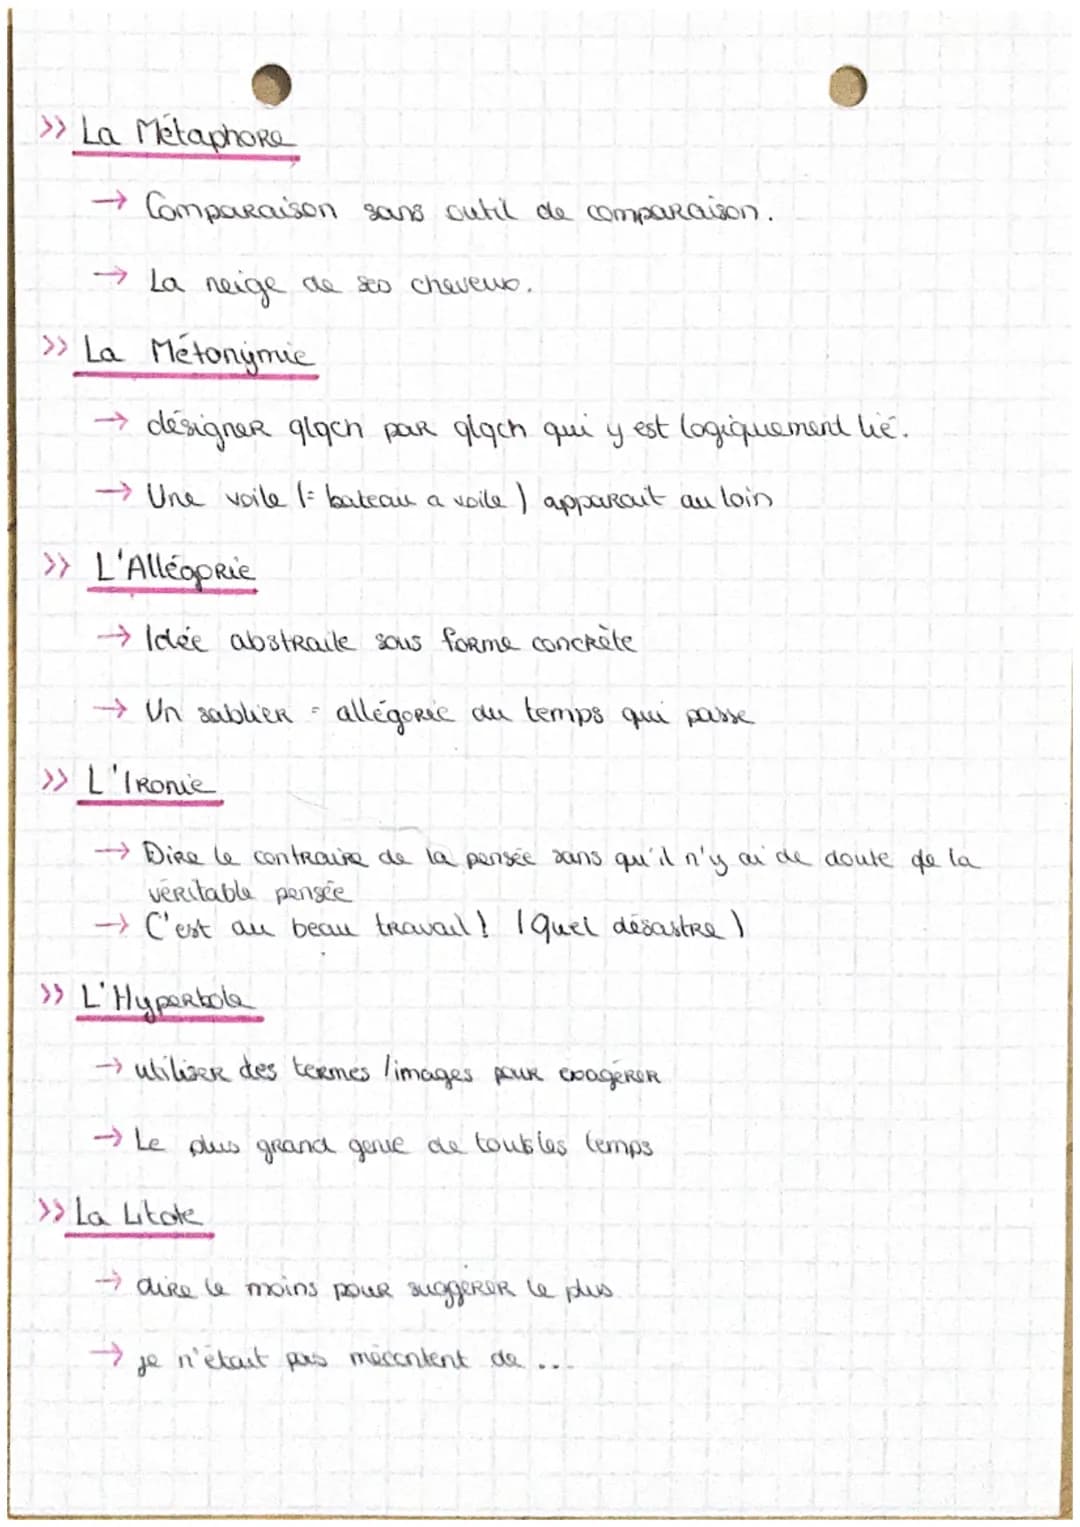 >> La Métaphore
→ Comparaison sans outil de comparaison.
→ La neige de ses cheveux.
>> La Métonymie
→ désigner qlqch par qlqch qui y est logiquement lié.
→ Une voile (= bateau a voile) apparait au loin
>> L'Allégorie
→ Idée abstraite sous forme concrète
→ Un sablier = allégorie du temps qui passe
>> L'Ironie
→ Dire le contraire de la pensée sans qu'il n'y ai de doute de la
véritable pensée
→ C'est du beau travail! (Quel désastre)
>> L'Hyperbole
→ utiliser des termes /images pour exagérer
→ Le plus grand génie de tous les temps
>> La Litote
→ dire le moins pour suggérer le plus
→ je n'était pas mécontent de ...